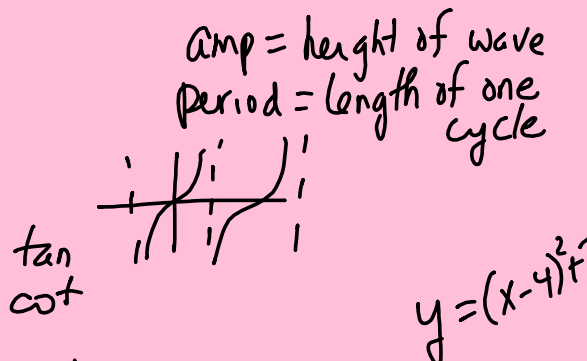 amp = height of wave
period = length of one
cycle
tan
cot
y = (x-4)²+